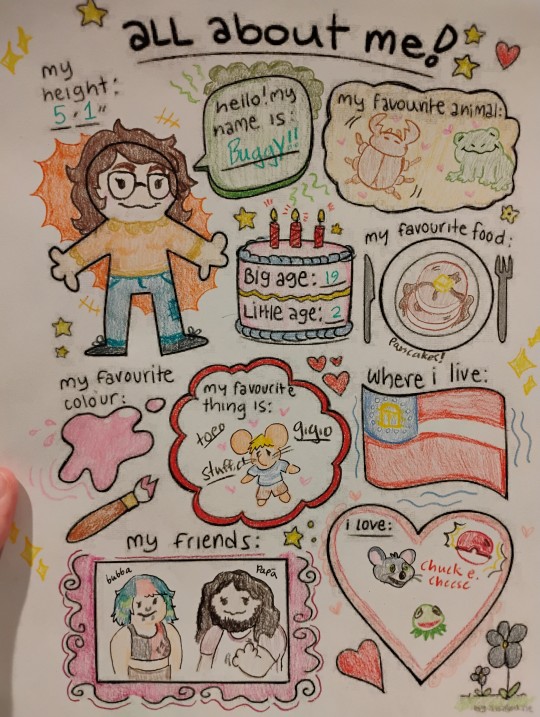 all about me!
my
height:
5'1"
hello! my
name is:
Buggy!!
my favourite animal:
my favourite food:
Pancakes!
Big age: 19
Little age: 2
my favourite
colour:
my favourite
thing is:
topo
gigio
where i live:
my friends:
bubba
Papa
i love:
chuck e.
cheese